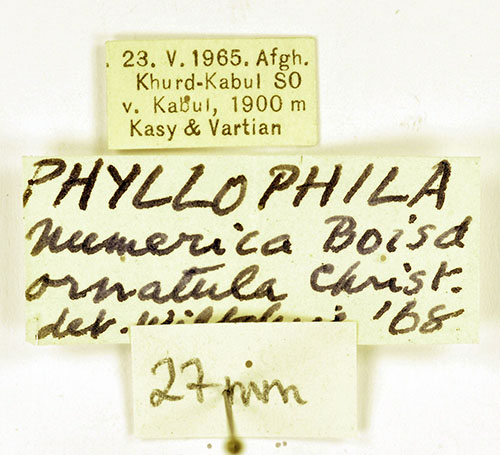 23. V. 1965. Afgh.
Khurd-Kabul SO
v. Kabul, 1900 m
Kasy & Vartian
PHYLLOPHILA
numerica Boisd
ornatula Christ.
det. '68
27 mm